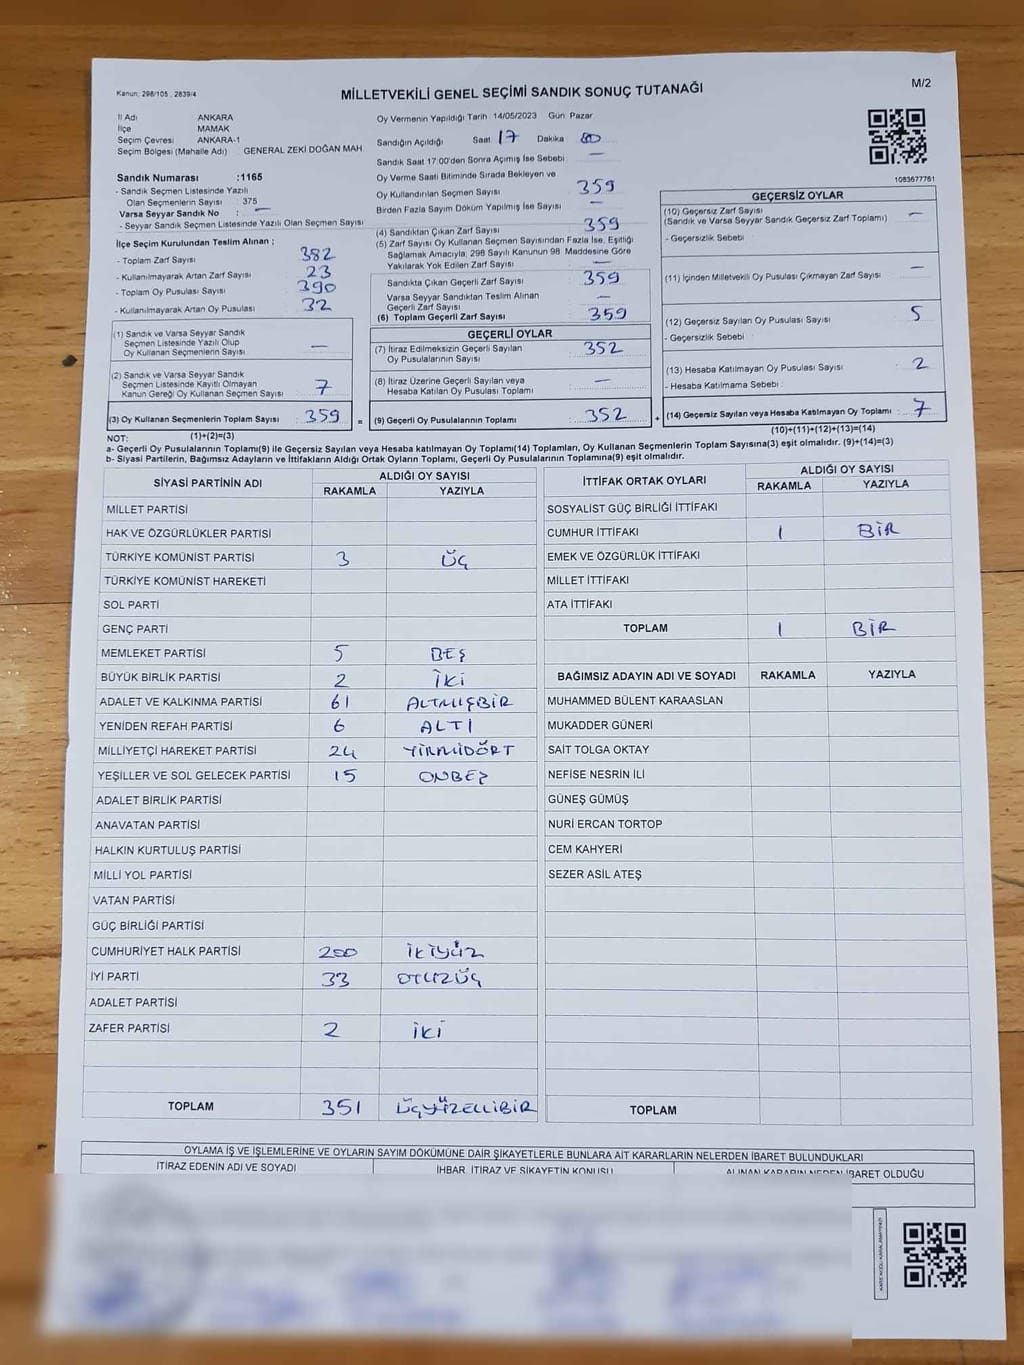 Kanun: 298/105 , 2839/4
MİLLETVEKİLİ GENEL SEÇİMİ SANDIK SONUÇ TUTANAĞI
M/2
İl Adı ANKARA
İlçe MAMAK
Seçim Çevresi ANKARA-1
Seçim Bölgesi (Mahalle Adı) : GENERAL ZEKİ DOĞAN MAH.
Sandık Numarası :1165
- Sandık Seçmen Listesinde Yazılı
Olan Seçmenlerin Sayısı : 375
Varsa Seyyar Sandık No : —
- Seyyar Sandık Seçmen Listesinde Yazılı Olan Seçmen Sayısı
İlçe Seçim Kurulundan Teslim Alınan ;
- Toplam Zarf Sayısı : 382
- Kullanılmayarak Artan Zarf Sayısı : 23
- Toplam Oy Pusulası Sayısı : 390
- Kullanılmayarak Artan Oy Pusulası : 32
(1) Sandık ve Varsa Seyyar Sandık
Seçmen Listesinde Yazılı Olup
Oy Kullanan Seçmenlerin Sayısı : —
(2) Sandık ve Varsa Seyyar Sandık
Seçmen Listesinde Kayıtlı Olmayan
Kanun Gereği Oy Kullanan Seçmen Sayısı : 7
(3) Oy Kullanan Seçmenlerin Toplam Sayısı : 359 =
(1)+(2)=(3)
Oy Vermenin Yapıldığı Tarih : 14/05/2023 Gün : Pazar
Sandığın Açıldığı Saat 17 Dakika 00
Sandık Saat 17:00'den Sonra Açımış İse Sebebi : —
Oy Verme Saati Bitiminde Sırada Bekleyen ve
Oy Kullandırılan Seçmen Sayısı : 359
Birden Fazla Sayım Döküm Yapılmış İse Sayısı : —
(4) Sandıktan Çıkan Zarf Sayısı : 359
(5) Zarf Sayısı Oy Kullanan Seçmen Sayısından Fazla İse, Eşitliği
Sağlamak Amacıyla, 298 Sayılı Kanunun 98. Maddesine Göre
Yakılarak Yok Edilen Zarf Sayısı : —
Sandıkta Çıkan Geçerli Zarf Sayısı : 359
Varsa Seyyar Sandıktan Teslim Alınan
Geçerli Zarf Sayısı : —
(6) Toplam Geçerli Zarf Sayısı : 359
GEÇERLİ OYLAR
(7) İtiraz Edilmeksizin Geçerli Sayılan
Oy Pusulalarının Sayısı : 352
(8) İtiraz Üzerine Geçerli Sayılan veya
Hesaba Katılan Oy Pusulası Toplamı : —
(9) Geçerli Oy Pusulalarının Toplamı : 352 +
1083677761
GEÇERSİZ OYLAR
(10) Geçersiz Zarf Sayısı
(Sandık ve Varsa Seyyar Sandık Geçersiz Zarf Toplamı) : —
- Geçersizlik Sebebi :
(11) İçinden Milletvekili Oy Pusulası Çıkmayan Zarf Sayısı : —
(12) Geçersiz Sayılan Oy Pusulası Sayısı : 5
- Geçersizlik Sebebi :
(13) Hesaba Katılmayan Oy Pusulası Sayısı : 2
- Hesaba Katılmama Sebebi :
(14) Geçersiz Sayılan veya Hesaba Katılmayan Oy Toplamı : 7
(10)+(11)+(12)+(13)=(14)
NOT:
a- Geçerli Oy Pusulalarının Toplamı(9) ile Geçersiz Sayılan veya Hesaba katılmayan Oy Toplamı(14) Toplamları, Oy Kullanan Seçmenlerin Toplam Sayısına(3) eşit olmalıdır. (9)+(14)=(3)
b- Siyasi Partilerin, Bağımsız Adayların ve İttifakların Aldığı Ortak Oyların Toplamı, Geçerli Oy Pusulalarının Toplamına(9) eşit olmalıdır.
SİYASİ PARTİNİN ADI ALDIĞI OY SAYISI
RAKAMLA YAZIYLA
MİLLET PARTİSİ
HAK VE ÖZGÜRLÜKLER PARTİSİ
TÜRKİYE KOMÜNİST PARTİSİ 3 ÜÇ
TÜRKİYE KOMÜNİST HAREKETİ
SOL PARTİ
GENÇ PARTİ
MEMLEKET PARTİSİ 5 BEŞ
BÜYÜK BİRLİK PARTİSİ 2 İKİ
ADALET VE KALKINMA PARTİSİ 61 ALTMIŞBİR
YENİDEN REFAH PARTİSİ 6 ALTI
MİLLİYETÇİ HAREKET PARTİSİ 24 YİRMİDÖRT
YEŞİLLER VE SOL GELECEK PARTİSİ 15 ONBEŞ
ADALET BİRLİK PARTİSİ
ANAVATAN PARTİSİ
HALKIN KURTULUŞ PARTİSİ
MİLLİ YOL PARTİSİ
VATAN PARTİSİ
GÜÇ BİRLİĞİ PARTİSİ
CUMHURİYET HALK PARTİSİ 200 İKİYÜZ
İYİ PARTİ 33 OTUZÜÇ
ADALET PARTİSİ
ZAFER PARTİSİ 2 İKİ
TOPLAM 351 ÜÇYÜZELLİBİR
İTTİFAK ORTAK OYLARI ALDIĞI OY SAYISI
RAKAMLA YAZIYLA
SOSYALİST GÜÇ BİRLİĞİ İTTİFAKI
CUMHUR İTTİFAKI 1 BİR
EMEK VE ÖZGÜRLÜK İTTİFAKI
MİLLET İTTİFAKI
ATA İTTİFAKI
TOPLAM 1 BİR
BAĞIMSIZ ADAYIN ADI VE SOYADI RAKAMLA YAZIYLA
MUHAMMED BÜLENT KARAASLAN
MUKADDER GÜNERİ
SAİT TOLGA OKTAY
NEFİSE NESRİN İLİ
GÜNEŞ GÜMÜŞ
NURİ ERCAN TORTOP
CEM KAHYERİ
SEZER ASİL ATEŞ
TOPLAM
OYLAMA İŞ VE İŞLEMLERİNE VE OYLARIN SAYIM DÖKÜMÜNE DAİR ŞİKAYETLERLE BUNLARA AİT KARARLARIN NELERDEN İBARET BULUNDUKLARI
İTİRAZ EDENİN ADI VE SOYADI İHBAR, İTİRAZ VE ŞİKAYETİN KONUSU ALINAN KARARIN NEDEN İBARET OLDUĞU